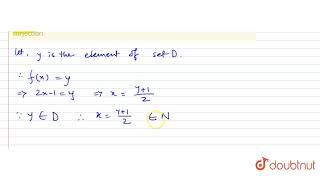 surjection.
Let, y is the element of set D.
∴ f(x) = y
⇒ 2x-1 = y ⇒ x = y+1/2
∵ y ∈ D ∴ x = y+1/2 ∈ N
doubtnut